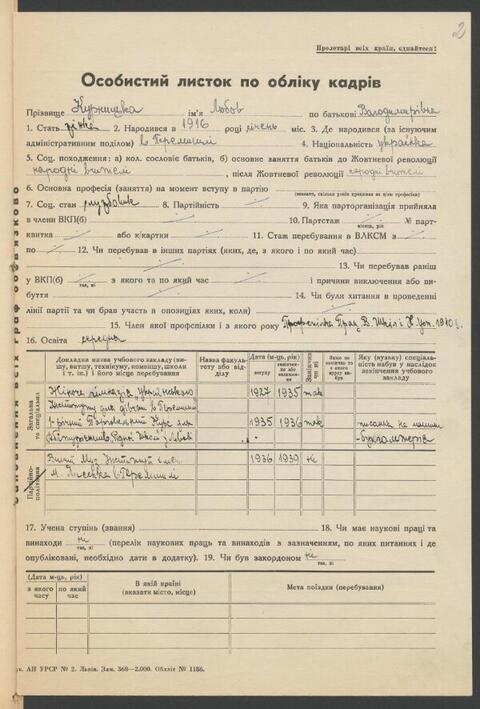 2
Пролетарі всіх країн, єднайтеся!
Особистий листок по обліку кадрів
Прізвище ім'я Любов по батькові Володимирівна
1. Стать 2. Народився в 1916 році січень міс. 3. Де народився (за існуючим
адміністративним поділом) в Перемишлі 4. Національність українка
5. Соц. походження: а) кол. сословіє батьків, б) основне заняття батьків до Жовтневої революції
народні вчителі , після Жовтневої революції народні вчителі
6. Основна професія (заняття) на момент вступу в партію
(вказати, скільки років працював за цією професією)
7. Соц. стан службовик 8. Партійність 9. Яка парторганізація прийняла
в члени ВКП(б) 10. Партстаж № парт-
місяць, рік
квитка або к/картки 11. Стаж перебування в ВЛКСМ з
по 12. Чи перебував в інших партіях (яких, де, з якого і по який час)
13. Чи перебував раніш
у ВКП(б) з якого та по який час і причини виключення або ви-
так, ні
буття 14. Чи були хитання в проведенні
лінії партії та чи брав участь в опозиціях (яких, коли)
15. Член якої профспілки і з якого року
16. Освіта середня
Докладна назва учбового закладу (ви-
шу, втишу, технікуму, комвишу, школи
і т. ін.) і його місце перебування
Назва факуль-
тету або від-
ділу
Дата (м-ць, рік)
вступу
Закінчив
чи ні
Яку (вузьку) спеціаль-
ність набув у наслідок
закінчення учбового
закладу
Загальна
та спеціальна
Жіноча гімназія Українського
Інституту для дівчат в Перемишлі
1927 1935 так
1-річний Курс для
1935 1936 так
Партійно-
політична
Вищий Муз. Інститут ім.
М. Лисенка в Перемишлі
1936 1939 ні
17. Учена ступінь (звання) 18. Чи має наукові праці та
винаходи ні (перелік наукових праць та винаходів з зазначенням, по яких питаннях і де
так, ні
опубліковані, необхідно дати в додатку). 19. Чи був закордоном ні
так, ні
(Дата м-ць, рік)
з якого
часу
по який
час
В якій країні
(вказати місто, місце)
Мета поїздки (перебування)
АН УРСР № 2. Львів. Зам. 368—2.000. Обліт № 1186.